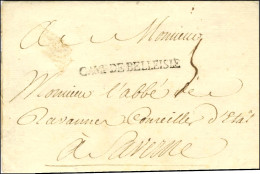 A Monsieur
5
CAMP DE BELLEISLE
Monsieur l'abbé de
Ravanne Conseiller d'Etat
à Saverne